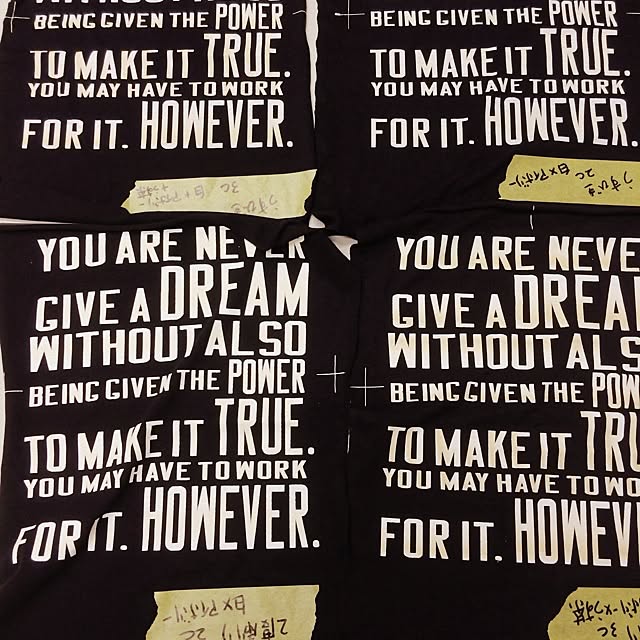 BEING GIVEN THE POWER
TO MAKE IT TRUE.
YOU MAY HAVE TO WORK
FOR IT. HOWEVER.
BEING GIVEN THE POWER
TO MAKE IT TRUE.
YOU MAY HAVE TO WORK
FOR IT. HOWEVER.
うすびき
3C 白+アイボリー
うすびき
2C 白×アイボリー
YOU ARE NEVER
GIVE A DREAM
WITHOUT ALSO
BEING GIVEN THE POWER
TO MAKE IT TRUE.
YOU MAY HAVE TO WORK
FOR IT. HOWEVER.
YOU ARE NEVE
GIVE A DREA
WITHOUT ALS
BEING GIVEN THE POW
TO MAKE IT TRU
YOU MAY HAVE TO WO
FOR IT. HOWEV
2度刷り 2C
白×アイボリー
3C